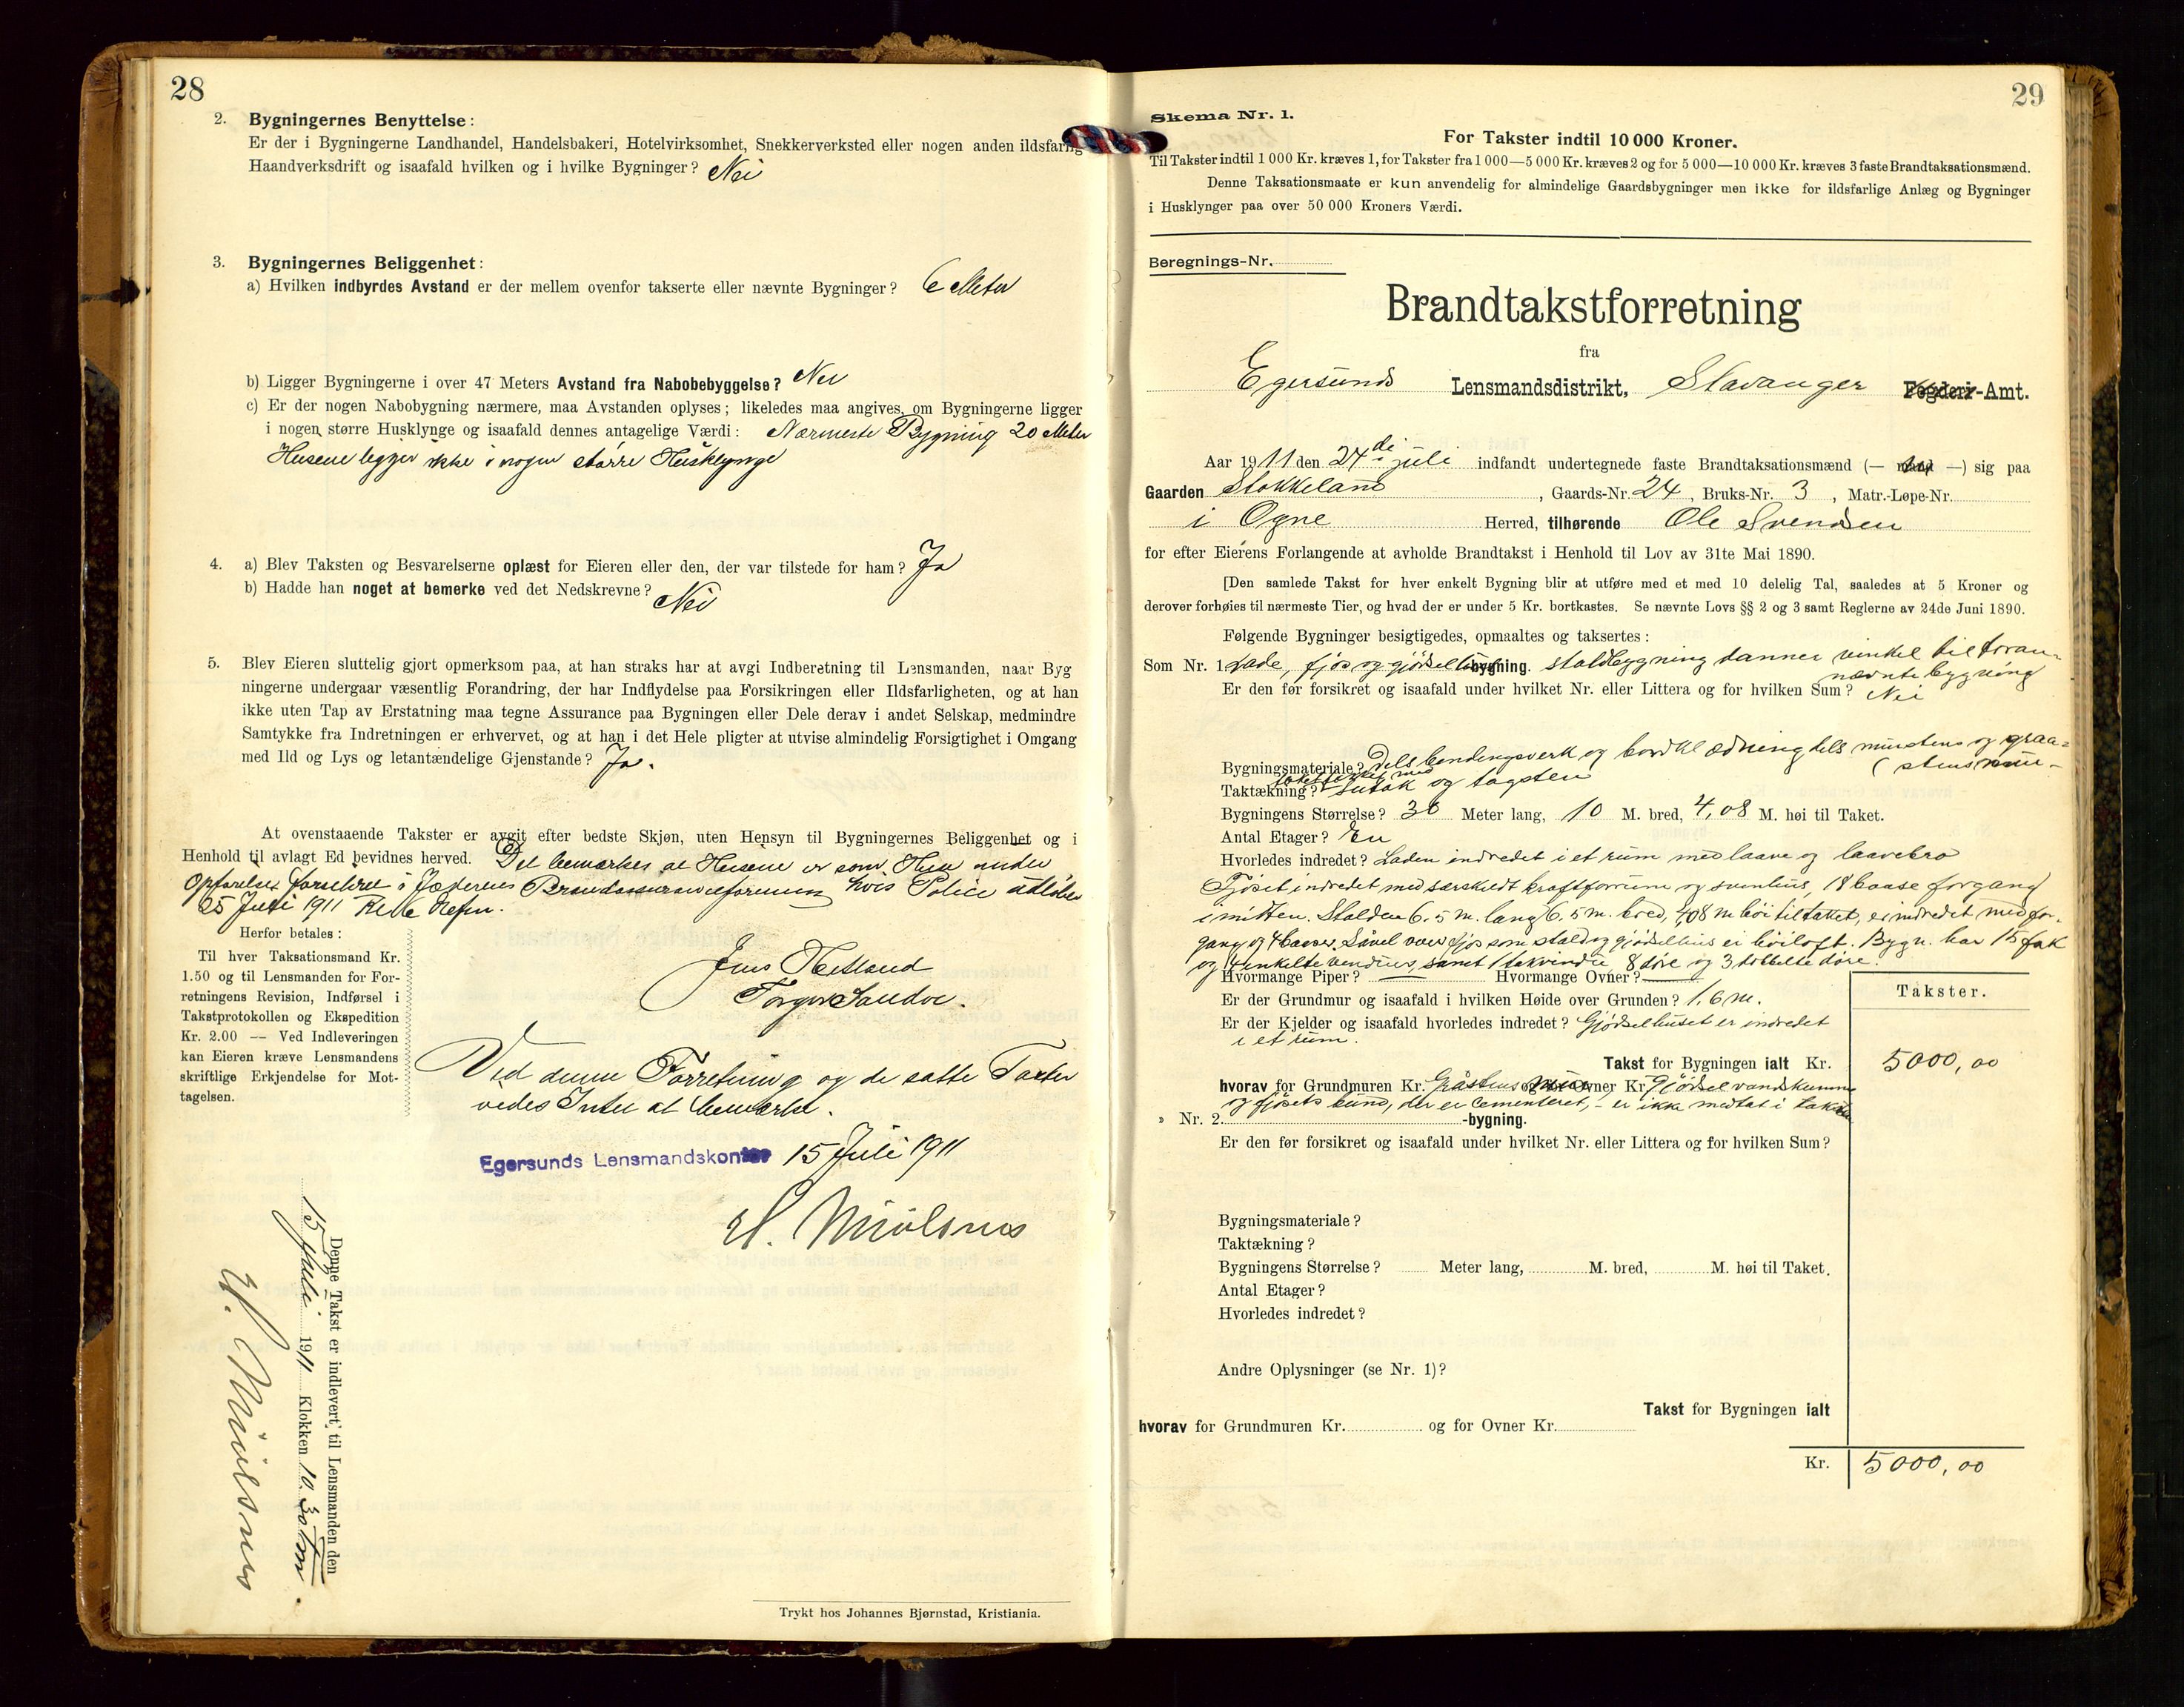 28
2. Bygningernes Benyttelse:
Er der i Bygningerne Landhandel, Handelsbakeri, Hotelvirksomhet, Snekkerverksted eller nogen anden ildsfarlig
Haandverksdrift og isaafald hvilken og i hvilke Bygninger? Nei
3. Bygningernes Beliggenhet:
a) Hvilken indbyrdes Avstand er der mellem ovenfor takserte eller nævnte Bygninger? 6 Meter
b) Ligger Bygningerne i over 47 Meters Avstand fra Nabobebyggelse? Nei
c) Er der nogen Nabobygning nærmere, maa Avstanden oplyses; likeledes maa angives, om Bygningerne ligger
i nogen større Husklynge og isaafald dennes antagelige Værdi: Nærmeste Bygning 20 Meter
Husene ligger ikke i nogen større Husklynge
4. a) Blev Taksten og Besvarelserne oplæst for Eieren eller den, der var tilstede for ham? Ja
b) Hadde han noget at bemerke ved det Nedskrevne? Nei
5. Blev Eieren sluttelig gjort opmerksom paa, at han straks har at avgi Indberetning til Lensmanden, naar Byg
ningerne undergaar væsentlig Forandring, der har Indflydelse paa Forsikringen eller Ildsfarligheten, og at han
ikke uten Tap av Erstatning maa tegne Assurance paa Bygningen eller Dele derav i andet Selskap, medmindre
Samtykke fra Indretningen er erhvervet, og at han i det Hele pligter at utvise almindelig Forsigtighet i Omgang
med Ild og Lys og letantændelige Gjenstande? Ja.
At ovenstaaende Takster er avgit efter bedste Skjøn, uten Hensyn til Bygningernes Beliggenhet og i
Henhold til avlagt Ed bevidnes herved. Det bemærkes at Husene er som Hus under
Opførelse forsikret i Jæderens Brandassuranceforening hvis Police udløber
25 Juli 1911
Herfor betales:
Til hver Taksationsmand Kr.
1.50 og til Lensmanden for For-
retningens Revision, Indførsel i
Takstprotokollen og Ekspedition
Kr. 2.00 — Ved Indleveringen
kan Eieren kræve Lensmandens
skriftlige Erkjendelse for Mot-
tagelsen.
Jens Hetland
Torger Sandve.
Ved denne Forretning og de satte Taxter
vedes Intet at bemærke.
Egersunds Lensmandskontor 15 Juli 1911
Denne Takst er indlevert til Lensmanden den
15 Juli 1911 Klokken 10.30 fm
Trykt hos Johannes Bjørnstad, Kristiania.
29
Skema Nr. 1.
For Takster indtil 10 000 Kroner.
Til Takster indtil 1 000 Kr. kræves 1, for Takster fra 1 000—5 000 Kr. kræves 2 og for 5 000—10 000 Kr. kræves 3 faste Brandtaksationsmænd.
Denne Taksationsmaate er kun anvendelig for almindelige Gaardsbygninger men ikke for ildsfarlige Anlæg og Bygninger
i Husklynger paa over 50 000 Kroners Værdi.
Beregnings-Nr.
Brandtakstforretning
fra
Egersunds Lensmandsdistrikt, Stavanger Fogderi-Amt.
Aar 1911 den 24de juli indfandt undertegnede faste Brandtaksationsmænd (— mand —) sig paa
Gaarden Stokkeland, Gaards-Nr. 24, Bruks-Nr. 3, Matr.-Løpe-Nr.
i Ogne Herred, tilhørende Ole Svendsen
for efter Eierens Forlangende at avholde Brandtakst i Henhold til Lov av 31te Mai 1890.
[Den samlede Takst for hver enkelt Bygning blir at utføre med et med 10 delelig Tal, saaledes at 5 Kroner og
derover forhøies til nærmeste Tier, og hvad der er under 5 Kr. bortkastes. Se nævnte Lovs §§ 2 og 3 samt Reglerne av 24de Juni 1890.
Følgende Bygninger besigtigedes, opmaaltes og taksertes:
Som Nr. 1 Lade, fjøs og gjødselhus-bygning. staldbygning danner vinkel til foran-
nævnte bygning
Er den før forsikret og isaafald under hvilket Nr. eller Littera og for hvilken Sum? Nei
Bygningsmateriale? Dels bendingsverk og bordklædning dels mursten og graa-
(stensmur-
Taktækning? med sutak og tagsten
Bygningens Størrelse? 30 Meter lang, 10 M. bred, 4,08 M. høi til Taket.
Antal Etager? En
Hvorledes indredet? Laden indredet i et rum med laave og laavebro
Fjøset indredet med særskildt kraftforrum og svinhus, 18 baase forgang
i midten. Stalden 6.5 m. lang 6.5 m. bred, 4,08 m høi til tattet, er indredet med for-
gang og 4 baaser. Såvel over fjøs som stald og gjødselhus er høiloft. Bygn. har 15 fak
og 4 enkelte venduer, samt 1 takvindu 8 døre og 3 dobbelte døre.
Hvormange Piper? — Hvormange Ovner? —
Er der Grundmur og isaafald i hvilken Høide over Grunden? 1,6 m.
Er der Kjelder og isaafald hvorledes indredet? Gjødselhuset er indredet
i et rum.
Takster.
Takst for Bygningen ialt Kr. 5000,00
hvorav for Grundmuren Kr. Gråstens mur og for Ovner Kr. Gjødselvandskumme
og fjøsets bund, der er cementeret, – er ikke medtat i taksten
» Nr. 2. -bygning.
Er den før forsikret og isaafald under hvilket Nr. eller Littera og for hvilken Sum?
Bygningsmateriale?
Taktækning?
Bygningens Størrelse? Meter lang, M. bred, M. høi til Taket.
Antal Etager?
Hvorledes indredet?
Andre Oplysninger (se Nr. 1)?
Takst for Bygningen ialt
hvorav for Grundmuren Kr. og for Ovner Kr.
Kr. 5000,00